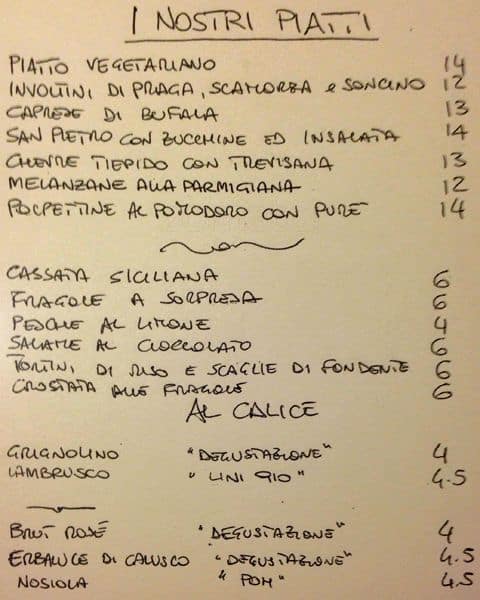 I NOSTRI PIATTI
PIATTO VEGETARIANO 14
INVOLTINI DI PRAGA, SCAMORZA e SONCINO 12
CAPRESE DI BUFALA 13
SAN PIETRO CON ZUCCHINE ED INSALATA 14
CHEVRE TIEPIDO CON TREVISANA 13
MELANZANE ALLA PARMIGIANA 12
POLPETTINE AL POMODORO CON PURÈ 14
CASSATA SICILIANA 6
FRAGOLE A SORPRESA 6
PESCHE AL LIMONE 4
SALAME AL CIOCCOLATO 6
TORTINI DI RISO E SCAGLIE DI FONDENTE 6
CROSTATA ALLE FRAGOLE 6
AL CALICE
GRIGNOLINO "DEGUSTAZIONE" 4
LAMBRUSCO "LINI 910" 4.5
BRUT ROSÉ "DEGUSTAZIONE" 4
ERBALUCE DI CALUSCO "DEGUSTAZIONE" 4.5
NOSIOLA "POM" 4.5